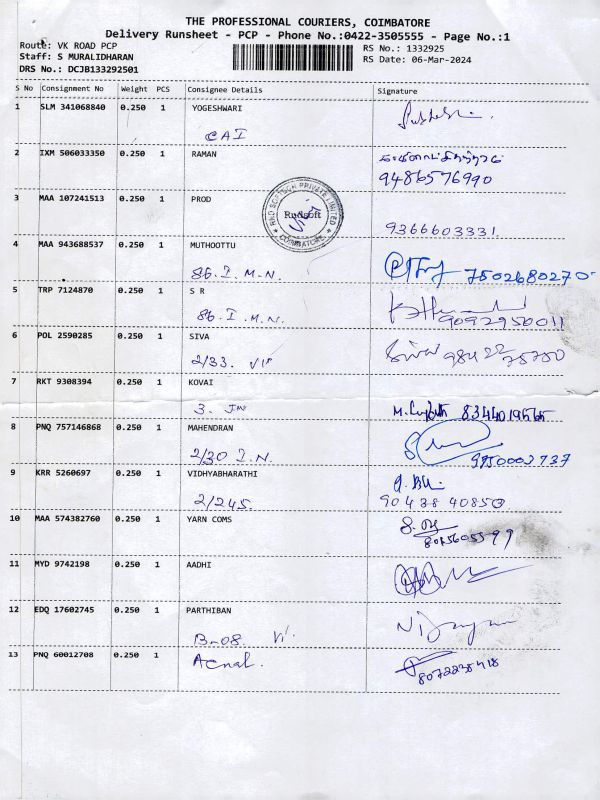 THE PROFESSIONAL COURIERS, COIMBATORE
Delivery Runsheet - PCP - Phone No.:0422-3505555 - Page No.:1
Route: VK ROAD PCP
Staff: S MURALIDHARAN
DRS No.: DCJB133292501
RS No.: 1332925
RS Date: 06-Mar-2024
S No Consignment No Weight PCS Consignee Details Signature
1 SLM 341068840 0.250 1 YOGESHWARI
CAI
2 IXM 506033350 0.250 1 RAMAN
9486576990
3 MAA 107241513 0.250 1 PROD
RND SOFTECH PRIVATE LIMITED
Rndsoft
COIMBATORE
9366603331
4 MAA 943688537 0.250 1 MUTHOOTTU
86. I. M.N.
7502680270
5 TRP 7124870 0.250 1 S R
86. I. M.N.
9092950011
6 POL 2590285 0.250 1 SIVA
2/33. VIP
98422 75750
7 RKT 9308394 0.250 1 KOVAI
3. JN
8344019565
8 PNQ 757146868 0.250 1 MAHENDRAN
2/30 I.N.
9 KRR 5260697 0.250 1 VIDHYABHARATHI
2/245.
90438 40850
10 MAA 574382760 0.250 1 YARN COMS
11 MYD 9742198 0.250 1 AADHI
12 EDQ 17602745 0.250 1 PARTHIBAN
B-08. Vi.
13 PNQ 60012708 0.250 1
Acnal.